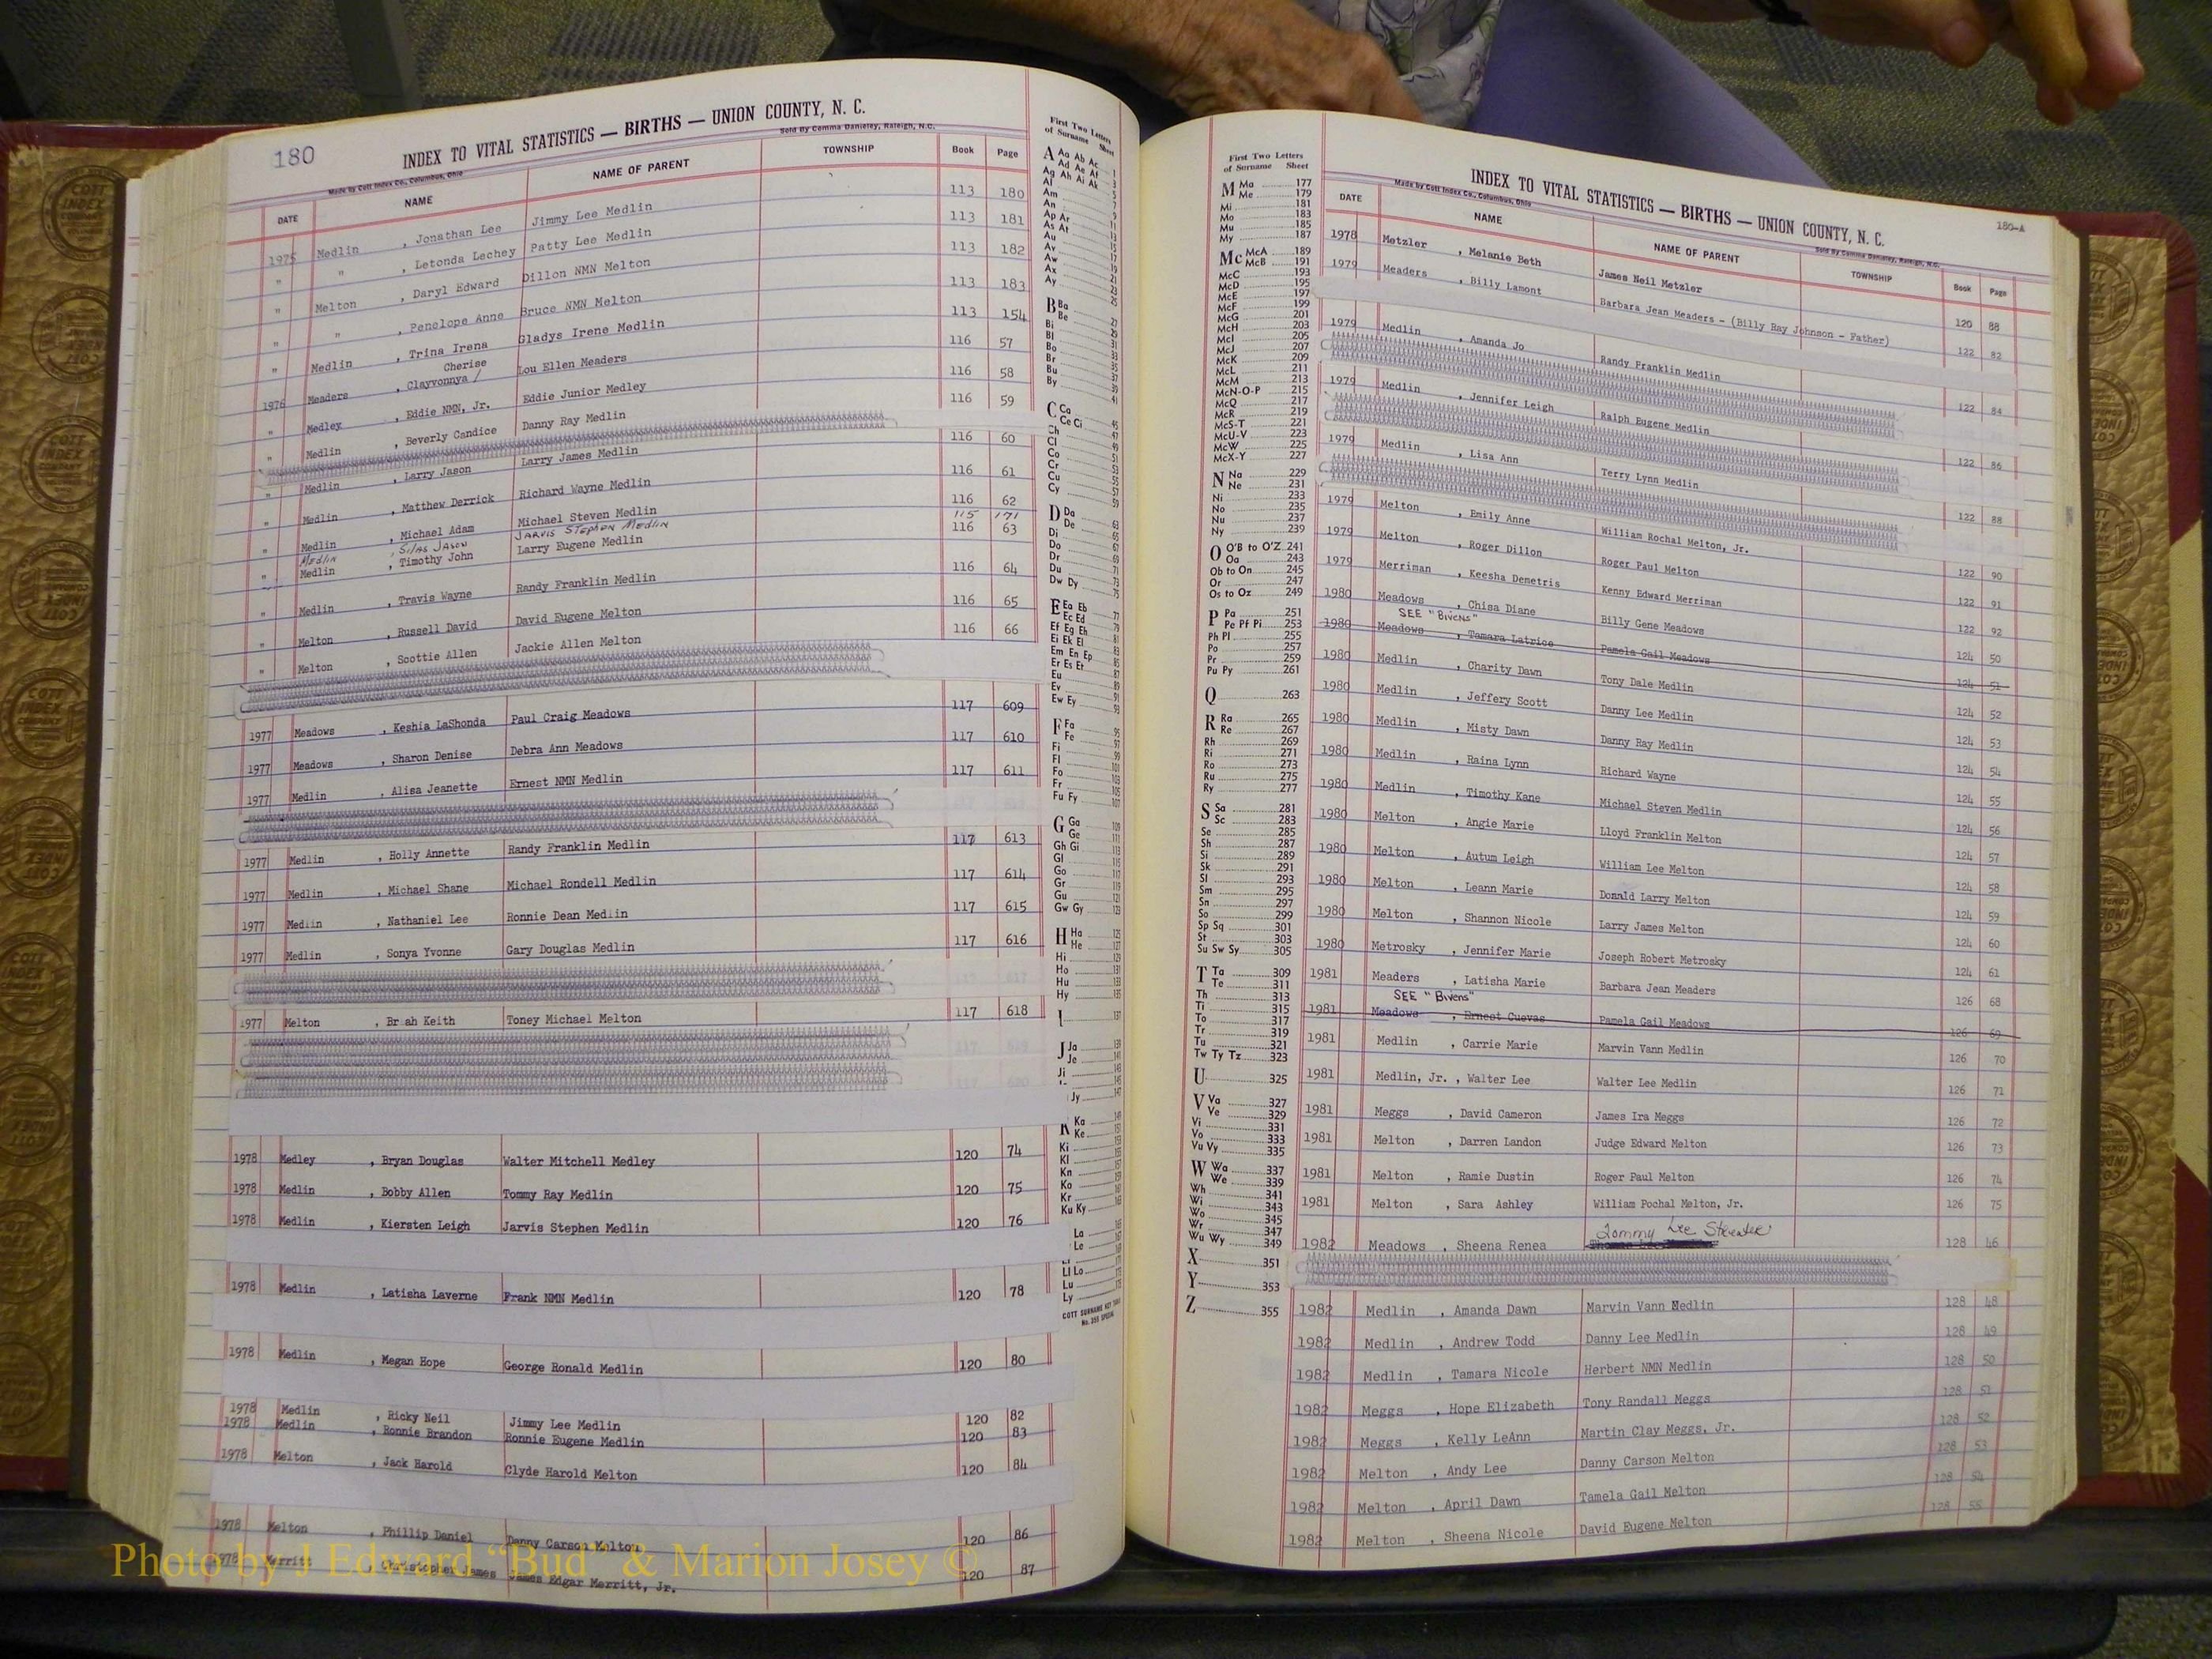 180
INDEX TO VITAL STATISTICS — BIRTHS — UNION COUNTY, N. C.
Made by Cott Index Co., Columbus, Ohio
Sold By Comma Danieley, Raleigh, N.C.
DATE NAME NAME OF PARENT TOWNSHIP Book Page
1975 Medlin , Jonathan Lee Jimmy Lee Medlin 113 180
" " , Letonda Lechey Patty Lee Medlin 113 181
" Melton , Daryl Edward Dillon NMN Melton 113 182
" " , Penelope Anne Bruce NMN Melton 113 183
" Medlin , Trina Irena Gladys Irene Medlin 113 154
Cherise
1976 Meaders , Clayvonnya / Lou Ellen Meaders 116 57
" Medley , Eddie NMN, Jr. Eddie Junior Medley 116 58
" Medlin , Beverly Candice Danny Ray Medlin 116 59
" Medlin , Larry Jason Larry James Medlin 116 60
" Medlin , Matthew Derrick Richard Wayne Medlin 116 61
" Medlin , Michael Adam Michael Steven Medlin 116 62
Medlin , Silas Jason Jarvis Stephen Medlin 115 171
" Medlin , Timothy John Larry Eugene Medlin 116 63
" Medlin , Travis Wayne Randy Franklin Medlin 116 64
" Melton , Russell David David Eugene Melton 116 65
" Melton , Scottie Allen Jackie Allen Melton 116 66
1977 Meadows , Keshia LaShonda Paul Craig Meadows 117 609
1977 Meadows , Sharon Denise Debra Ann Meadows 117 610
1977 Medlin , Alisa Jeanette Ernest NMN Medlin 117 611
1977 Medlin , Holly Annette Randy Franklin Medlin 117 613
1977 Medlin , Michael Shane Michael Rondell Medlin 117 614
1977 Medlin , Nathaniel Lee Ronnie Dean Medlin 117 615
1977 Medlin , Sonya Yvonne Gary Douglas Medlin 117 616
1977 Melton , Br ah Keith Toney Michael Melton 117 618
1978 Medley , Bryan Douglas Walter Mitchell Medley 120 74
1978 Medlin , Bobby Allen Tommy Ray Medlin 120 75
1978 Medlin , Kiersten Leigh Jarvis Stephen Medlin 120 76
1978 Medlin , Latisha Laverne Frank NMN Medlin 120 78
1978 Medlin , Megan Hope George Ronald Medlin 120 80
1978 Medlin , Ricky Neil Jimmy Lee Medlin 120 82
1978 Medlin , Ronnie Brandon Ronnie Eugene Medlin 120 83
1978 Melton , Jack Harold Clyde Harold Melton 120 84
1978 Melton , Phillip Daniel Danny Carson Melton 120 86
1978 Merritt , Christopher James James Edgar Merritt, Jr. 120 87
First Two Letters
of Surname Sheet
A Aa Ab Ac
Ad Ae Af
Ag Ah Ai Ak
Al
Am
An
Ap Ar
As At
Au
Av
Aw
Ax
Ay
B Ba
Be
Bi
Bl
Bo
Br
Bu
By
C Ca
Ce Ci
Ch
Cl
Co
Cr
Cu
Cy
D Da
De
Di
Do
Dr
Du
Dw Dy
E Ea Eb
Ec Ed
Ef Eg Eh
Ei Ek El
Em En Ep
Er Es Et
Eu
Ev
Ew Ey
F Fa
Fe
Fi
Fl
Fo
Fr
Fu Fy
G Ga
Ge
Gh Gi
Gl
Go
Gr
Gu
Gw Gy
H Ha
He
Hi
Ho
Hu
Hy
I
J Ja
Je
Ji
Jy
K Ka
Ke
Ki
Kl
Kn
Ko
Kr
Ku Ky
La
Le
Ll Lo
Lu
Ly
First Two Letters
of Surname Sheet
M Ma 177
Me 179
Mi 181
Mo 183
Mu 185
My 187
Mc McA 189
McB 191
McC 193
McD 195
McE 197
McF 199
McG 201
McH 203
McI 205
McJ 207
McK 209
McL 211
McM 213
McN-O-P 215
McQ 217
McR 219
McS-T 221
McU-V 223
McW 225
McX-Y 227
N Na 229
Ne 231
Ni 233
No 235
Nu 237
Ny 239
O O'B to O'Z 241
Oa 243
Ob to On 245
Or 247
Os to Oz 249
P Pa 251
Pe Pf Pi 253
Ph Pl 255
Po 257
Pr 259
Pu Py 261
Q 263
R Ra 265
Re 267
Rh 269
Ri 271
Ro 273
Ru 275
Ry 277
S Sa 281
Sc 283
Se 285
Sh 287
Si 289
Sk 291
Sl 293
Sm 295
Sn 297
So 299
Sp Sq 301
St 303
Su Sw Sy 305
T Ta 309
Te 311
Th 313
Ti 315
To 317
Tr 319
Tu 321
Tw Ty Tz 323
U 325
V Va 327
Ve 329
Vi 331
Vo 333
Vu Vy 335
W Wa 337
We 339
Wh 341
Wi 343
Wo 345
Wr 347
Wu Wy 349
X 351
Y 353
Z 355
180-A
INDEX TO VITAL STATISTICS — BIRTHS — UNION COUNTY, N. C.
Made by Cott Index Co., Columbus, Ohio
Sold By Comma Danieley, Raleigh, N.C.
DATE NAME NAME OF PARENT TOWNSHIP Book Page
1978 Metzler , Melanie Beth James Neil Metzler 120 88
1979 Meaders , Billy Lamont Barbara Jean Meaders - (Billy Ray Johnson - Father) 122 82
1979 Medlin , Amanda Jo Randy Franklin Medlin 122 84
1979 Medlin , Jennifer Leigh Ralph Eugene Medlin 122 86
1979 Medlin , Lisa Ann Terry Lynn Medlin 122 88
1979 Melton , Emily Anne William Rochal Melton, Jr. 122 90
1979 Melton , Roger Dillon Roger Paul Melton 122 91
1979 Merriman , Keesha Demetris Kenny Edward Merriman 122 92
1980 Meadows , Chisa Diane Billy Gene Meadows 124 50
SEE "Bivens"
1980 Meadows , Tamara Latrice Pamela Gail Meadows 124 51
1980 Medlin , Charity Dawn Tony Dale Medlin 124 52
1980 Medlin , Jeffery Scott Danny Lee Medlin 124 53
1980 Medlin , Misty Dawn Danny Ray Medlin 124 54
1980 Medlin , Raina Lynn Richard Wayne 124 55
1980 Medlin , Timothy Kane Michael Steven Medlin 124 56
1980 Melton , Angie Marie Lloyd Franklin Melton 124 57
1980 Melton , Autum Leigh William Lee Melton 124 58
1980 Melton , Leann Marie Donald Larry Melton 124 59
1980 Melton , Shannon Nicole Larry James Melton 124 60
1980 Metrosky , Jennifer Marie Joseph Robert Metrosky 124 61
1981 Meaders , Latisha Marie Barbara Jean Meaders 126 68
SEE "Bivens"
1981 Meadows , Ernest Cuevas Pamela Gail Meadows 126 69
1981 Medlin , Carrie Marie Marvin Vann Medlin 126 70
1981 Medlin, Jr. , Walter Lee Walter Lee Medlin 126 71
1981 Meggs , David Cameron James Ira Meggs 126 72
1981 Melton , Darren Landon Judge Edward Melton 126 73
1981 Melton , Ramie Dustin Roger Paul Melton 126 74
1981 Melton , Sara Ashley William Pochal Melton, Jr. 126 75
Tommy Lee
1982 Meadows , Sheena Renea 128 46
1982 Medlin , Amanda Dawn Marvin Vann Medlin 128 48
1982 Medlin , Andrew Todd Danny Lee Medlin 128 49
1982 Medlin , Tamara Nicole Herbert NMN Medlin 128 50
1982 Meggs , Hope Elizabeth Tony Randall Meggs 128 51
1982 Meggs , Kelly LeAnn Martin Clay Meggs, Jr. 128 52
1982 Melton , Andy Lee Danny Carson Melton 128 53
1982 Melton , April Dawn Tamela Gail Melton 128 54
1982 Melton , Sheena Nicole David Eugene Melton 128 55
Photo by J Edward "Bud" & Marion Josey ©